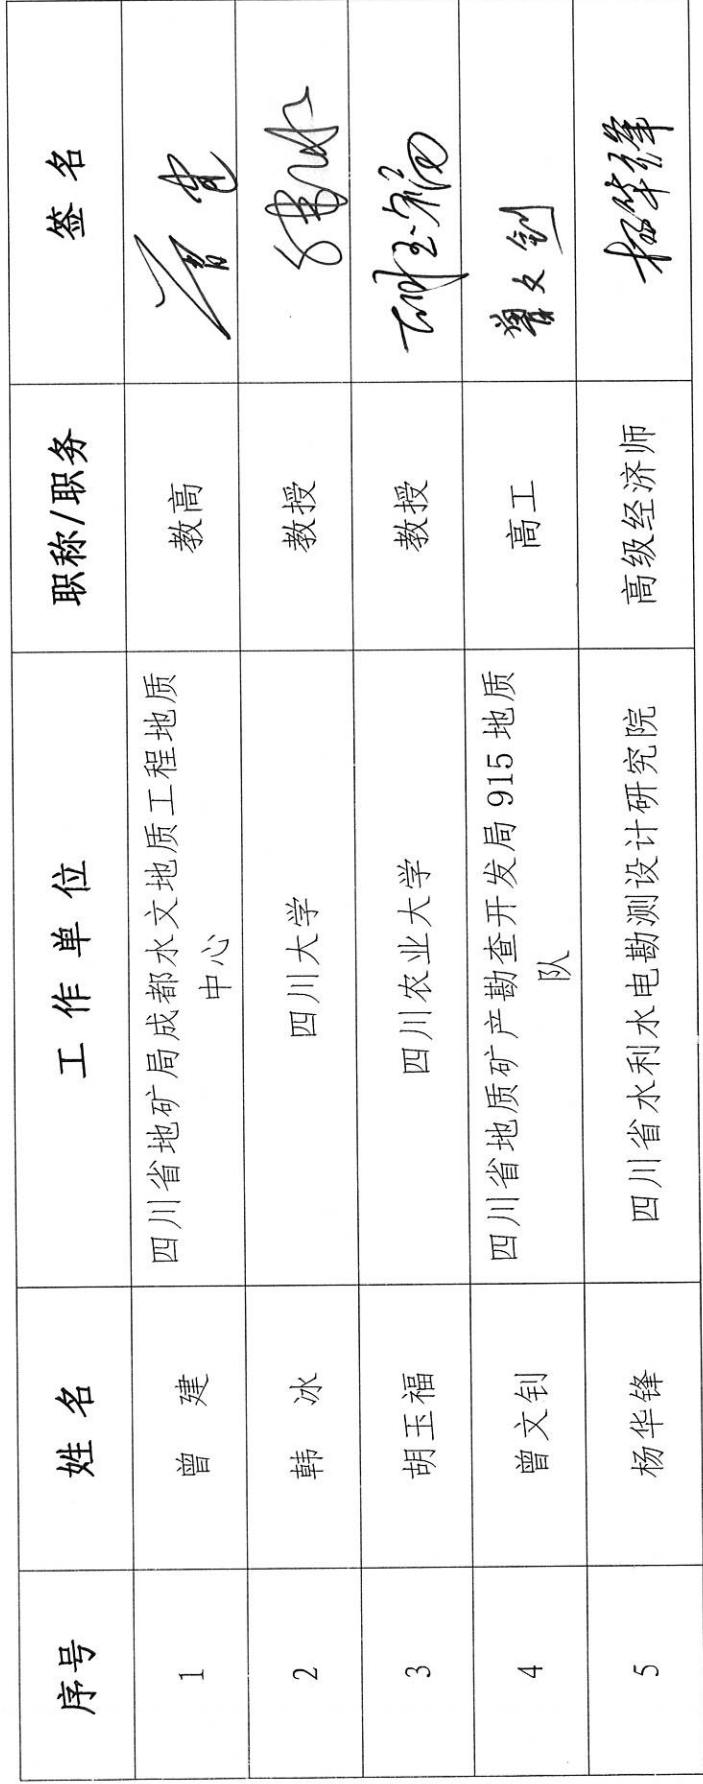 序号 姓名 工作单位 职称/职务 签名
1 曾建 四川省地矿局成都水文地质工程地质 教高
中心
2 韩冰 四川大学 教授
3 胡玉福 四川农业大学 教授 胡玉福
4 曾文钊 四川省地质矿产勘查开发局915地质 高工 曾文钊
队
5 杨华锋 四川省水利水电勘测设计研究院 高级经济师 杨华锋